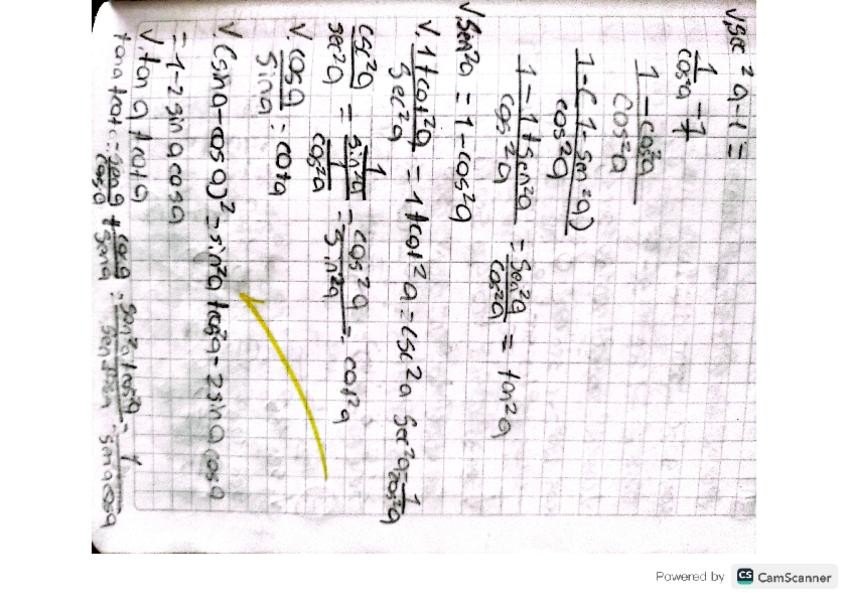 √ sec²a-1 =
1/cos²a - 1/1
1-cos²a/cos²a
1-(1-sen²a)/cos²a
1-1+sen²a/cos²a = sen²a/cos²a = tan²a
√ sen²a = 1-cos²a
√ 1+cot²a/sec²a = 1+cot²a = csc²a sec²a = 1/cos²a
csc²a/sec²a = 1/sin²a / 1/cos²a = cos²a/sin²a = cot²a
√ cosa/sina = cota
√ (sina-cosa)² = sin²a+cos²a-2sinacosa
= 1-2sinacosa
√ tana+cota
tana+cota = sena/cosa + cosa/sena = sen²a+cos²a/ = 1/senacosa
Powered by CS CamScanner